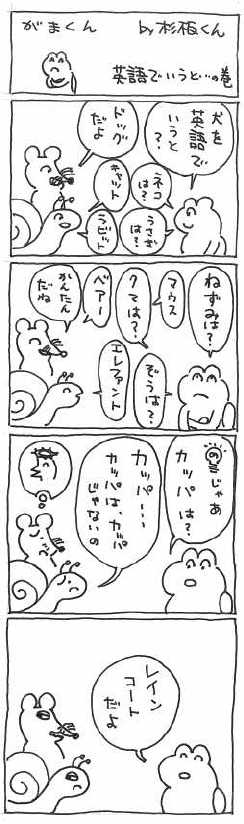 がまくん
by 杉板くん
英語でいうと…の巻
犬を
英語で
いうと
?
ドッグ
だよ
ネコ
は?
キャット
うさぎ
は?
ラビット
ねずみは?
マウス
クマは?
ベアー
ぞうは?
エレファント
かんたん
だね
じゃあ
カッパは?
カッパ…
カッパは、カッパ
じゃないの
レイン
コート
だよ